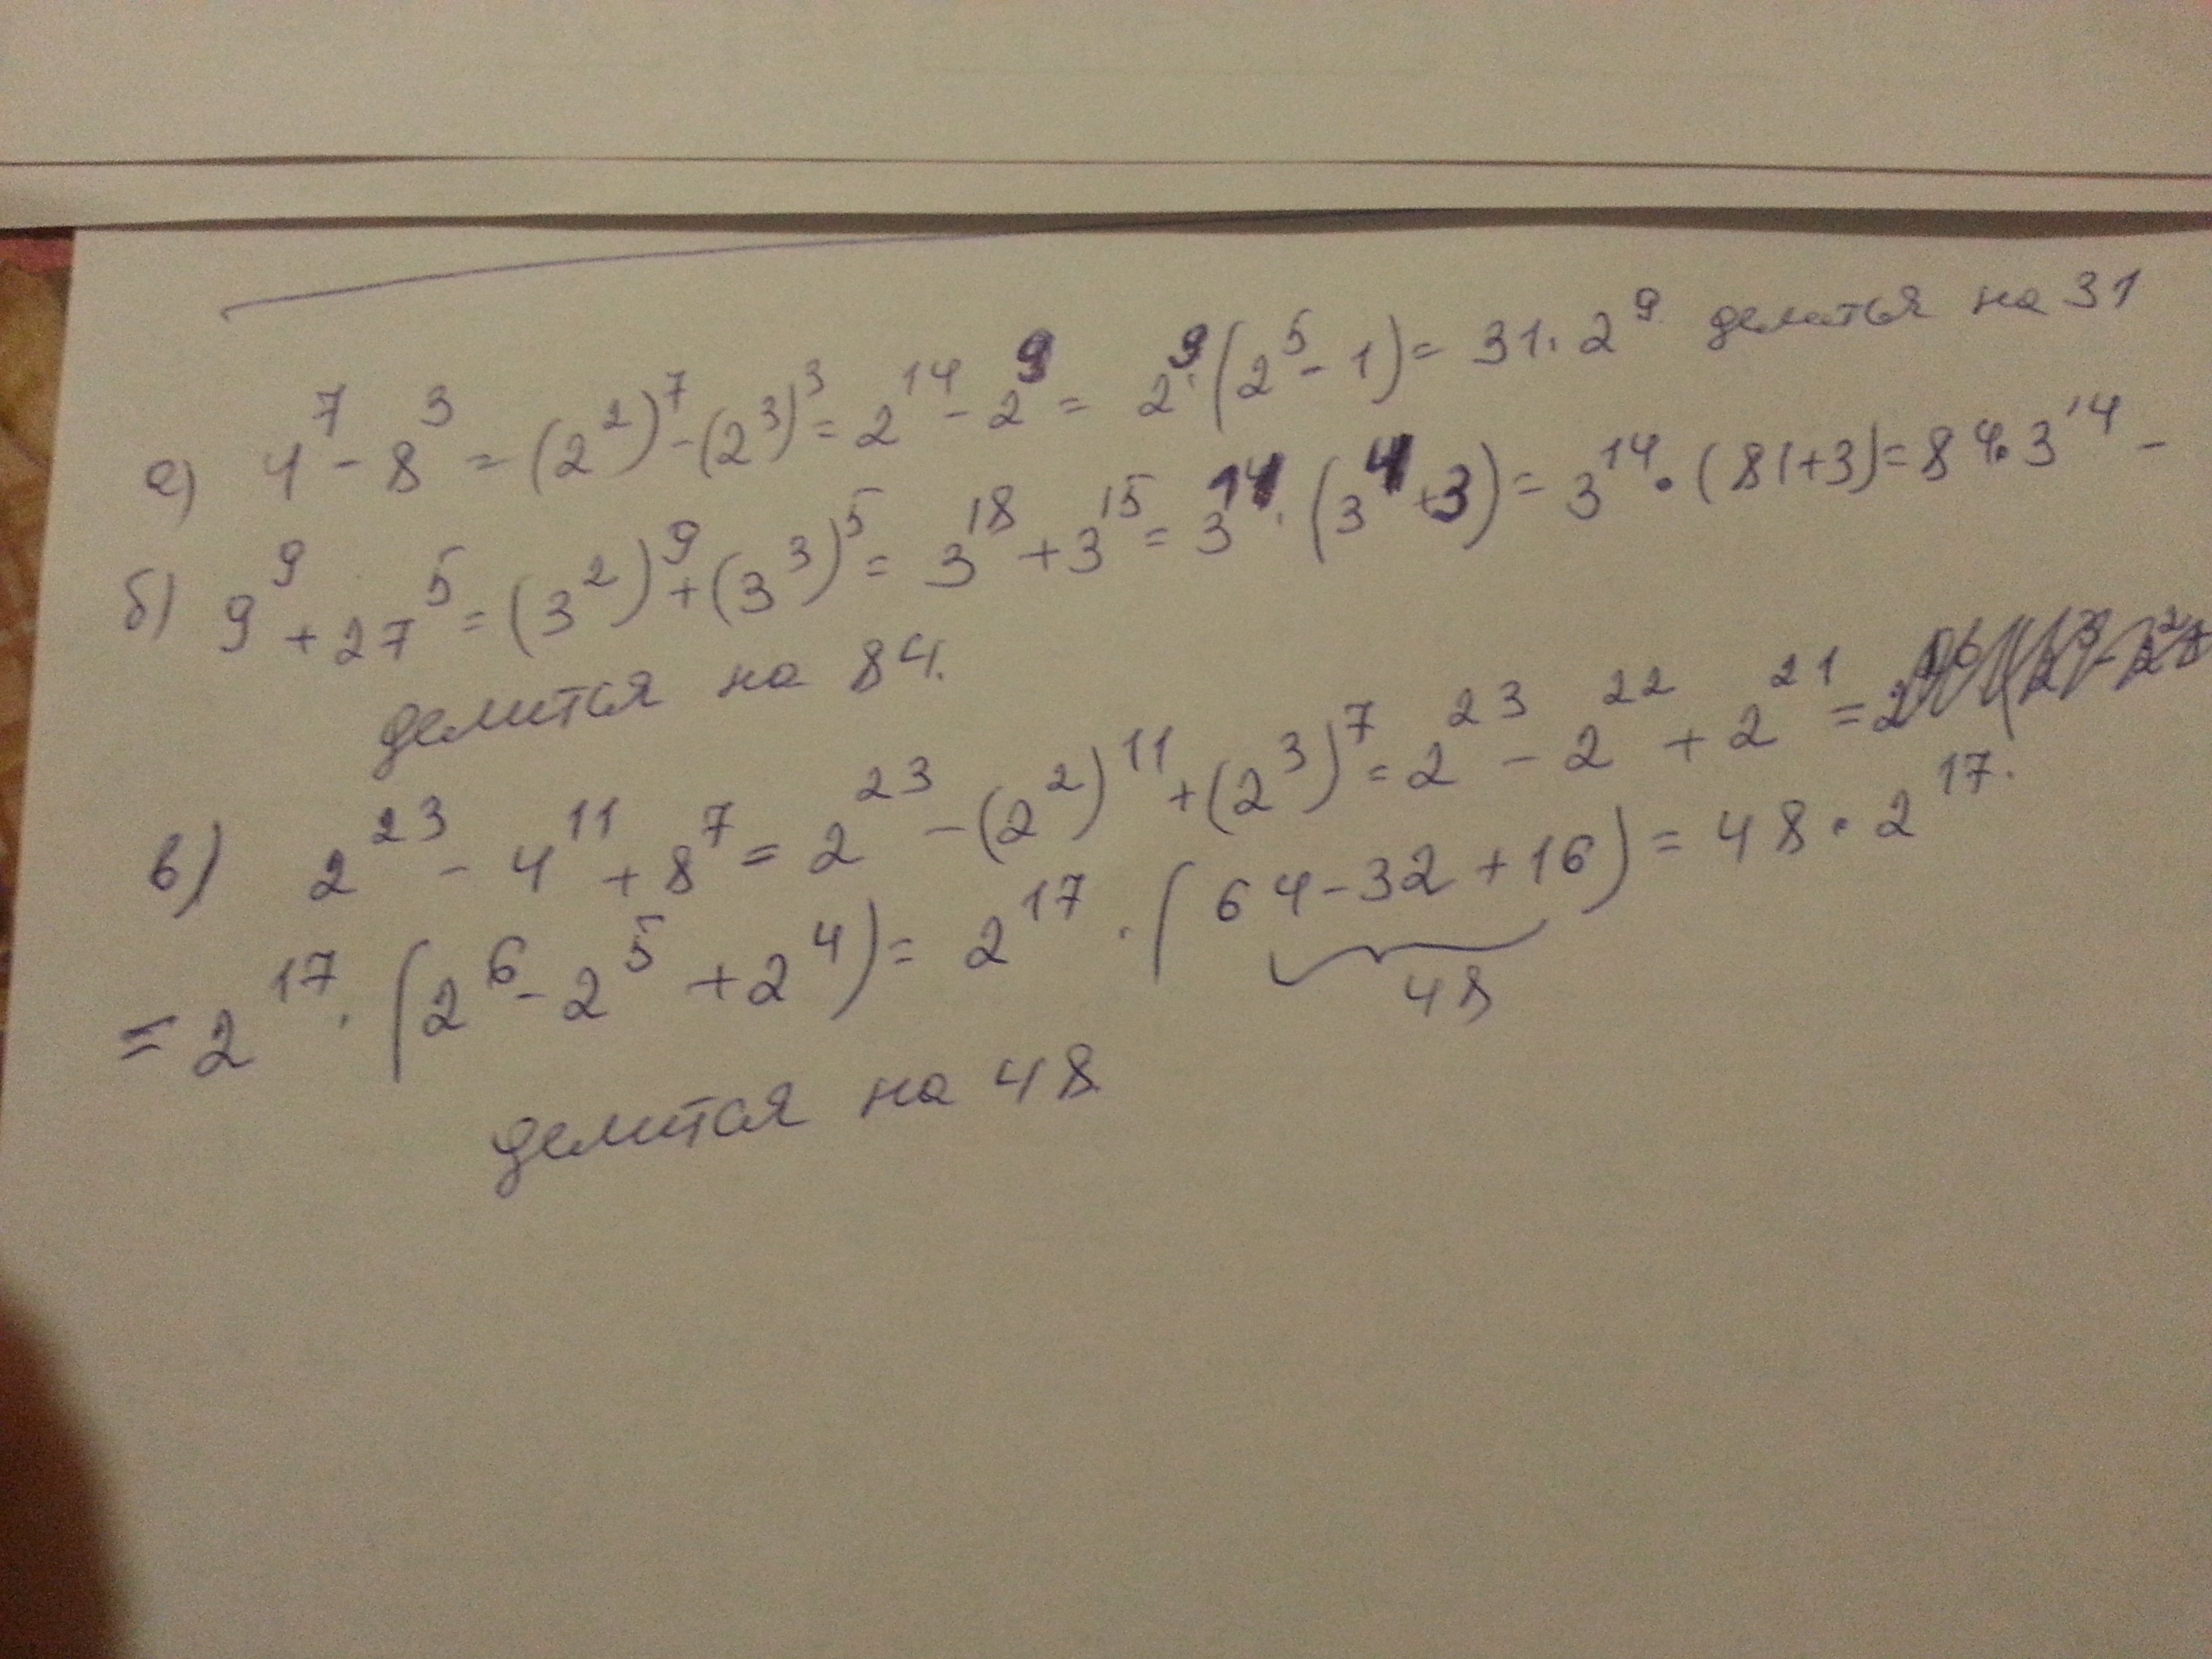 а) 4⁷ - 8³ = (2²)⁷ - (2³)³ = 2¹⁴ - 2⁹ = 2⁹·(2⁵ - 1) = 31·2⁹ делится на 31
б) 9⁹ + 27⁵ = (3²)⁹ + (3³)⁵ = 3¹⁸ + 3¹⁵ = 3¹⁴·(3⁴ + 3) = 3¹⁴·(81+3) = 84·3¹⁴ -
делится на 84.
в) 2²³ - 4¹¹ + 8⁷ = 2²³ - (2²)¹¹ + (2³)⁷ = 2²³ - 2²² + 2²¹ =
= 2¹⁷·(2⁶ - 2⁵ + 2⁴) = 2¹⁷·(64 - 32 + 16) = 48·2¹⁷.
48
делится на 48